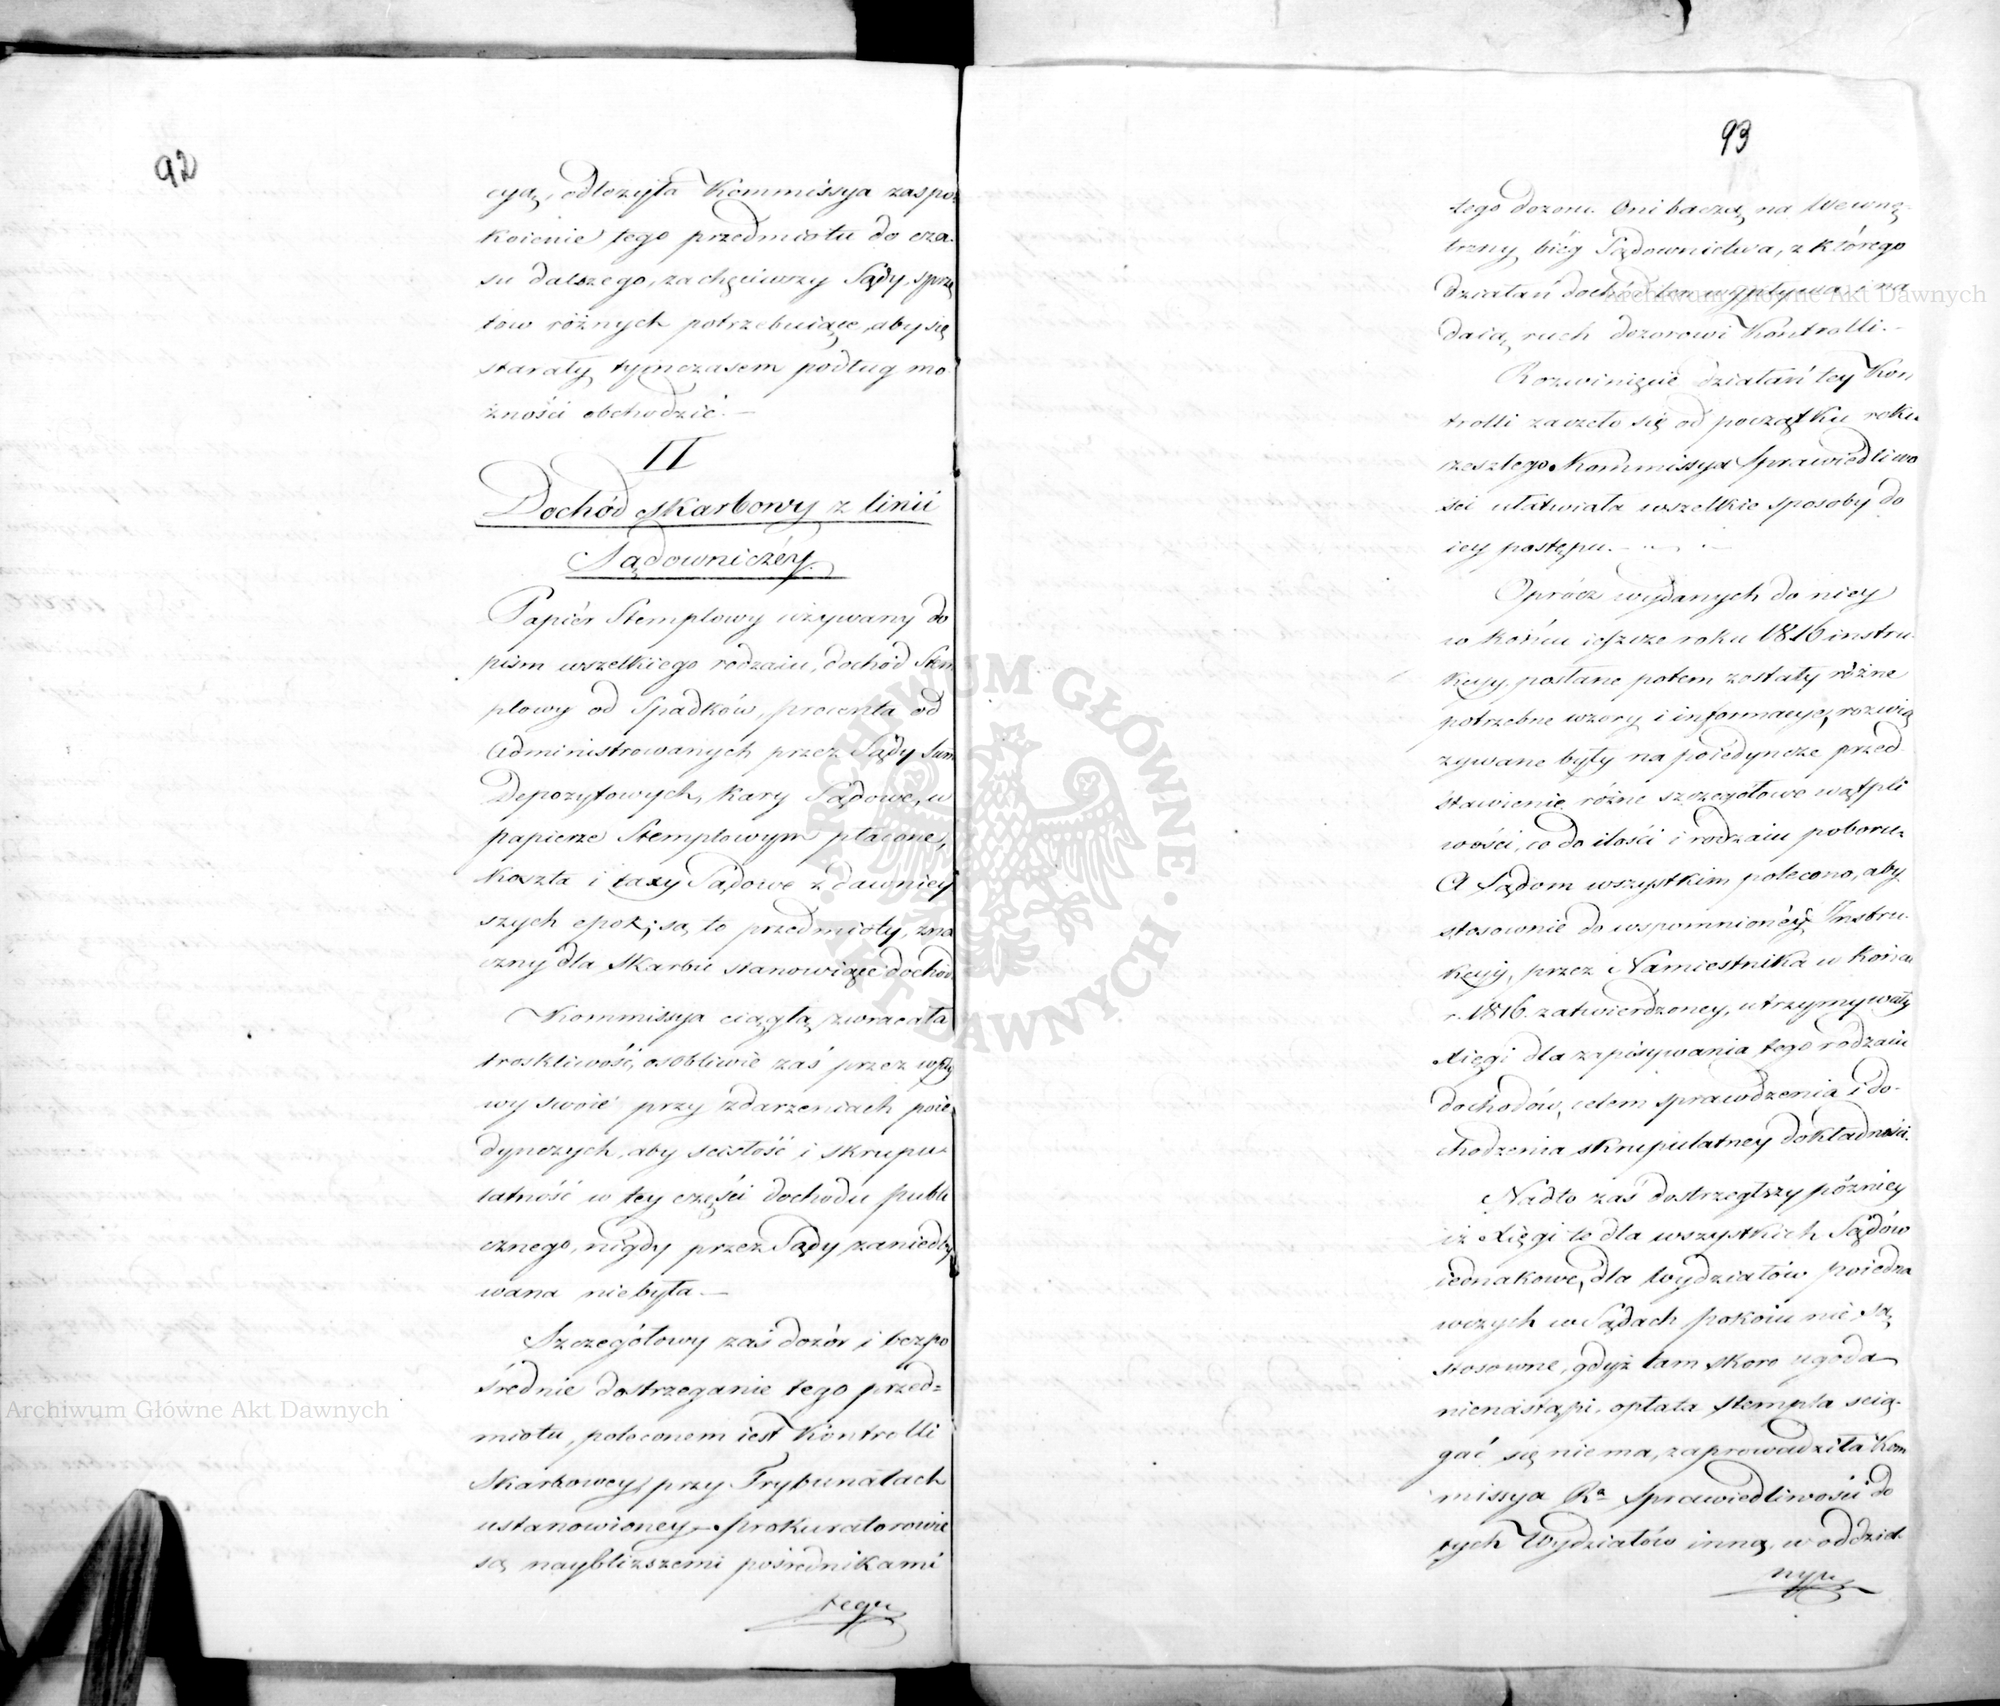 92
cyą, odłożyła Kommissya zaspo-
koienie tego przedmiotu do cza-
su dalszego, zachęciwszy Sądy, sprzę
tow różnych potrzebuiące, aby się
starały tymczasem podług mo
żności obchodzić. —
II
Dochód skarbowy z linii
Sądowniczéy.
Papiér Stemplowy używany do
pism wszelkiego rodzaiu, dochód Stem
plowy od Spadków, procenta od
administrowanych przez Sądy Sum
Depozytowych, Kary Sądowe, w
papierze Stemplowym płacone,
Koszta i taxy Sądowe z dawniey
szych epok; są to przedmioty, zna
czny dla Skarbu stanowiące dochód.
Kommissya ciągłą zwracała
troskliwość, osobliwie zaś przez wpły
wy swoie przy zdarzeniach poie
dynczych, aby scisłość i skrupu-
latność w tey części dochodu publi
cznego, nigdy przez Sądy zaniedby
wana niebyła. —
Szczegółowy zaś dozór i bezpo
średnie dostrzeganie tego przed=
miotu, poleconem iest Kontrolli
Skarbowey, przy Trybunałach
ustanowioney. — prokuratorowie
są nayblizszemi pośrednikami
tego
93
tego dozoru. Oni baczą na wewnę-
trzny bieg Sądownictwa, z którego
działań dochód ten wypływa i na
daią ruch dozorowi Kontrolli. —
Rozwinięcie działań tey Kon
trolli zaczęło się od początku roku
zeszłego. Kommissya Sprawiedliwo
ści ułatwiała wszelkie sposoby do
iey postępu. —
Oprócz wydanych do niey
w końcu ieszcze roku 1816 instru-
kcyy, posłane potem zostały różne
potrzebne wzory i informacye, rozwią
zywane były na poiedyncze przed-
stawienie różne szczegółowe wątpli
wości, co do ilości i rodzaiu poboru.
A Sądom wszystkim polecono, aby
stosownie do wspomnionéy Instru-
kcyy, przez Namiestnika w końcu
r. 1816. zatwierdzoney, utrzymywały
xięgi dla zapisywania tego rodzaiu
dochodów, celem sprawdzenia i do-
chodzenia skrupulatney dokładności.
Nadto zaś dostrzegłszy późniey
iż xięgi te dla wszystkich Sądów
iednakowe, dla Wydziałów poiedna
wczych w Sądach pokoiu nie są
stosowne, gdyż tam skoro ugoda
nienastąpi, opłata stempla scią-
gać się nie ma, zaprowadziła Kom
missya Ra Sprawiedliwości do
tych Wydziałów inną, w oddziel-
nym
Archiwum Główne Akt Dawnych
Archiwum Główne Akt Dawnych
ARCHIWUM GŁÓWNE · AKT DAWNYCH ·